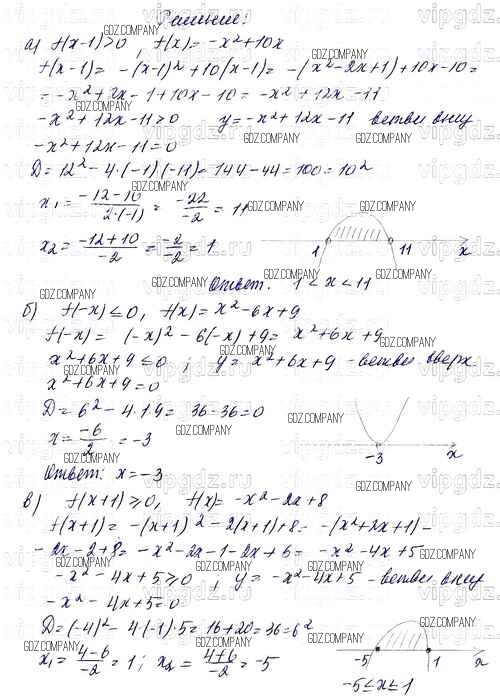 Решение:
а) f(x-1)>0, f(x)= -x²+10x
f(x-1)= -(x-1)²+10(x-1)= -(x²-2x+1)+10x-10=
= -x²+2x-1+10x-10= -x²+12x-11
-x²+12x-11>0 y= -x²+12x-11 ветви вниз
-x²+12x-11=0
D=12²-4·(-1)(-11)=144-44=100=10²
x₁= (-12-10)/(2·(-1)) = -22/-2 = 11
x₂= (-12+10)/-2 = -2/-2 = 1
1 11 x
Ответ: 1<x<11
б) f(-x)≤0, f(x)= x²-6x+9
f(-x)= (-x)²-6(-x)+9= x²+6x+9
x²+6x+9≤0; y= x²+6x+9 - ветви вверх
x²+6x+9=0
D=6²-4·1·9= 36-36=0
x= -6/2 = -3
-3 x
Ответ: x=-3
в) f(x+1)≥0, f(x)= -x²-2x+8
f(x+1)= -(x+1)²-2(x+1)+8= -(x²+2x+1)-
-2x-2+8= -x²-2x-1-2x+6= -x²-4x+5
-x²-4x+5≥0, y= -x²-4x+5 - ветви вниз
-x²-4x+5=0
D=(-4)²-4(-1)·5=16+20=36=6²
x₁= (4-6)/-2 = 1; x₂= (4+6)/-2 = -5
-5 1 x
-5≤x≤1
GDZ.COMPANY
vipgdz.ru